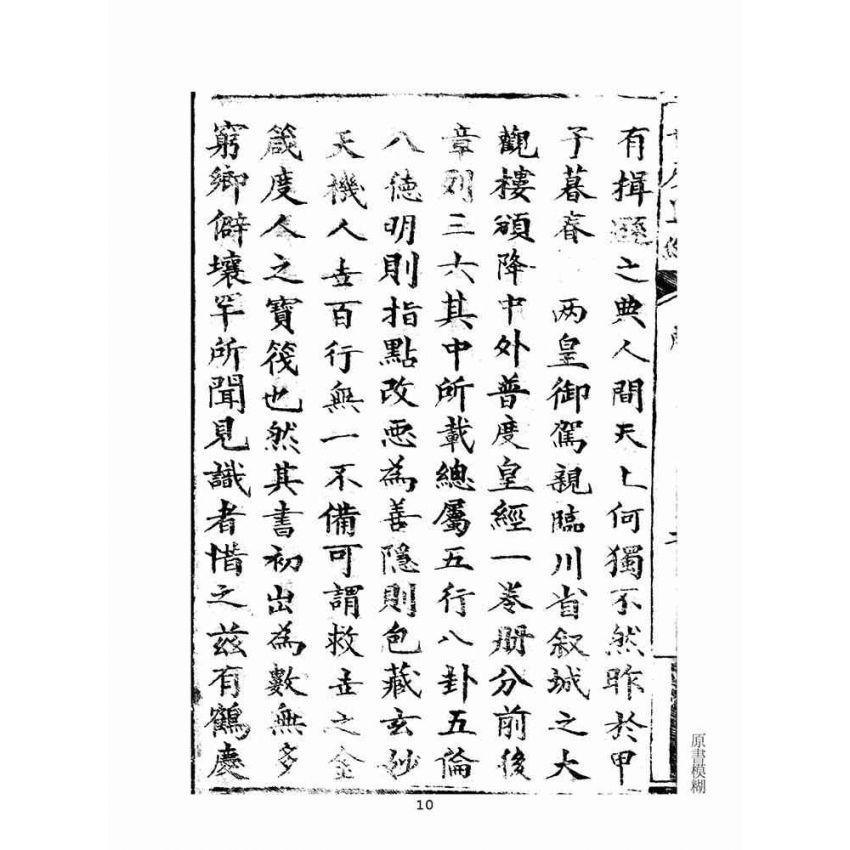 有揖遜之典人間天上何獨不然昨於甲
子暮春　两皇御駕親臨川省叙城之大
觀樓頒降中外普度皇經一卷册分前後
章列三六其中所載總屬五行八卦五倫
八德明則指點改惡為善隱則包藏玄妙
天機人世百行無一不備可謂救世之金
箴度人之寶筏也然其書初出為數無多
窮鄉僻壤罕所聞見識者惜之茲有鶴慶
原書模糊
10